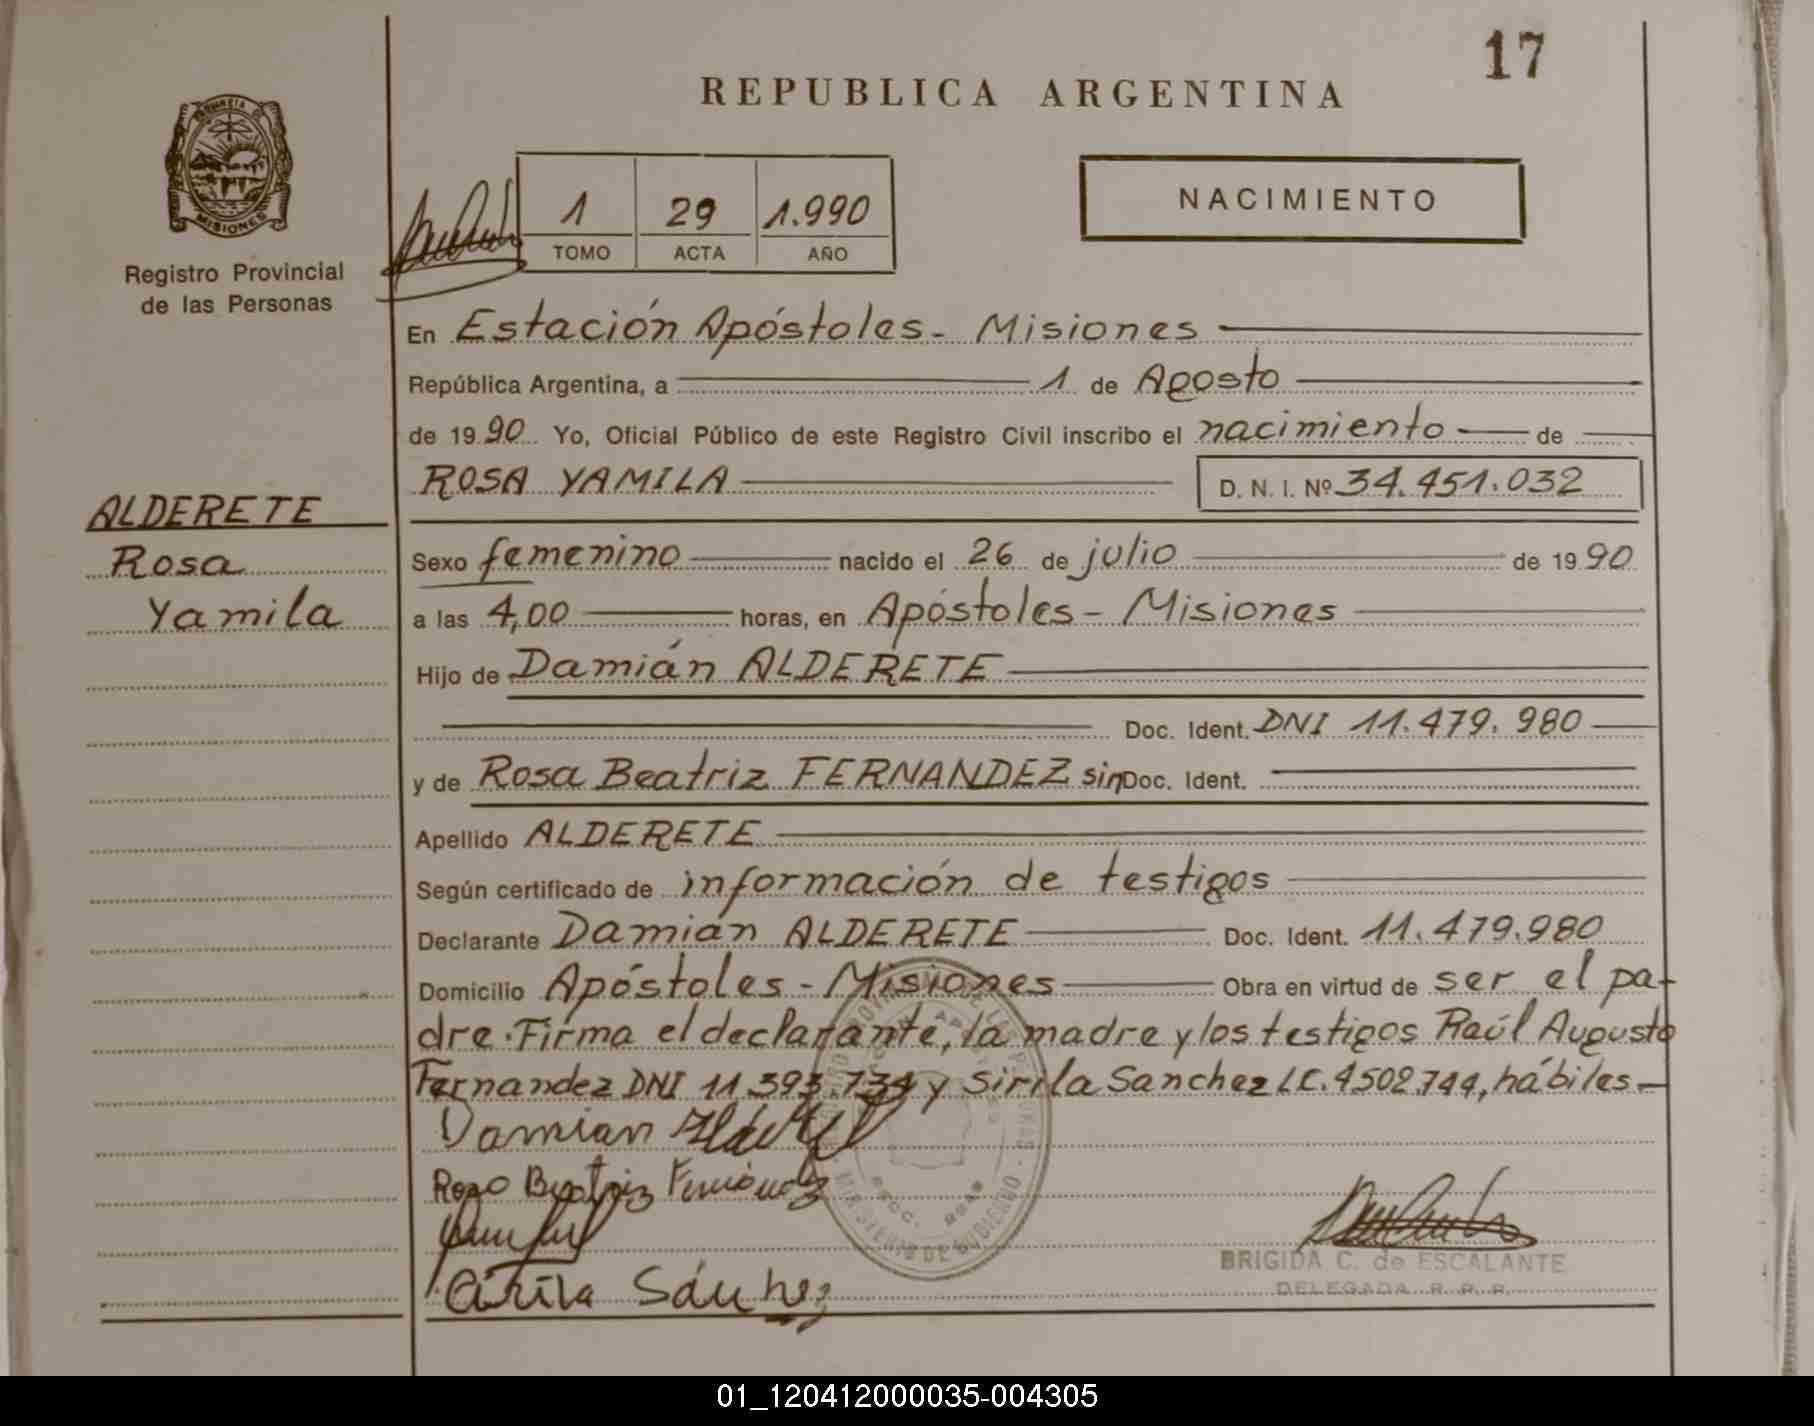 17
REPUBLICA ARGENTINA
MISIONES
Registro Provincial
de las Personas
1 29 1.990
TOMO ACTA AÑO
NACIMIENTO
En Estación Apóstoles - Misiones
República Argentina, a 1 de Agosto
de 1990 Yo, Oficial Público de este Registro Civil inscribo el nacimiento de
ROSA YAMILA D. N. I. Nº 34.451.032
ALDERETE
Rosa
Yamila
Sexo femenino nacido el 26 de julio de 1990
a las 4,00 horas, en Apóstoles - Misiones
Hijo de Damián ALDERETE
Doc. Ident. DNI 11.479.980
y de Rosa Beatriz FERNANDEZ sin Doc. Ident.
Apellido ALDERETE
Según certificado de información de testigos
Declarante Damián ALDERETE Doc. Ident. 11.479.980
Domicilio Apóstoles - Misiones Obra en virtud de ser el pa-
dre. Firma el declarante, la madre y los testigos Raúl Augusto
Fernandez DNI 11.393.734 y Sirila Sanchez LC. 4502.744, hábiles
Damian
Rosa Beatriz Fernández
Cirila Sánchez
MINISTERIO DE GOBIERNO
BRIGIDA C. de ESCALANTE
DELEGADA R. P. P.
01_120412000035-004305